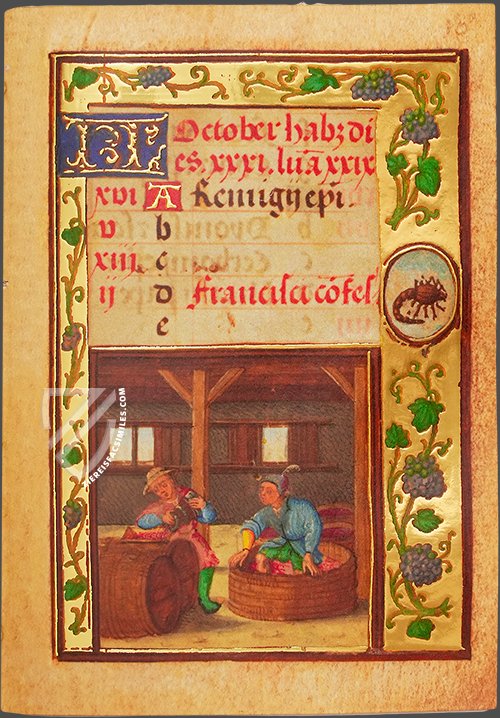 KL October habz di
es. xxxi. lūa xxix
xvi A Remigij epi.
v b
xiii c
ij d Francisci cōfes
e
ZIEREISFACSIMILES.COM